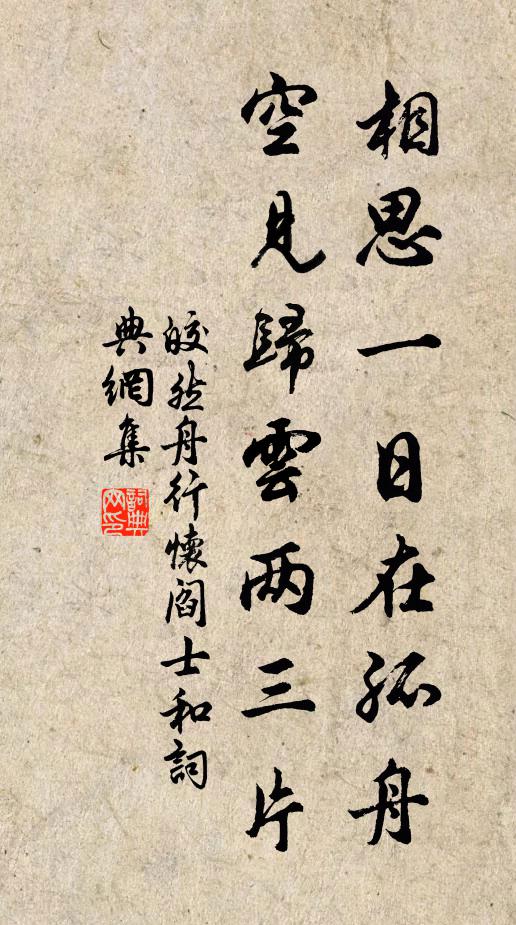 相思一日在孤舟
空見歸雲两三片
皎然舟行懷閻士和詞
典網集
詞典网印